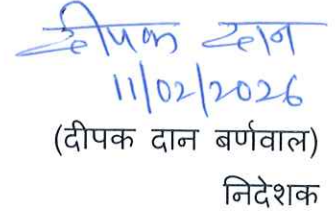 दीपक दान
11/02/2026
(दीपक दान बर्णवाल)
निदेशक